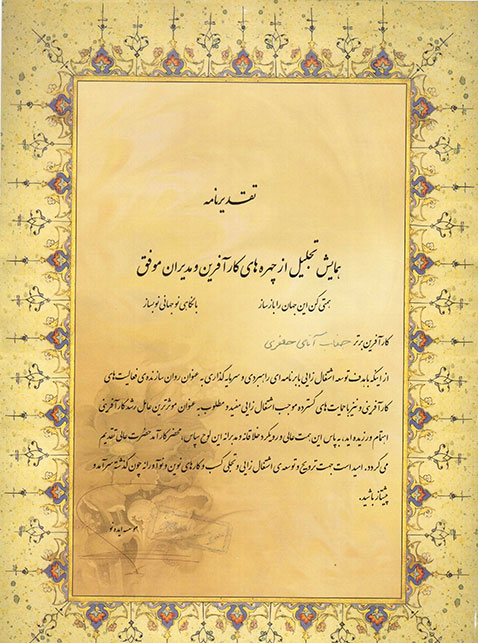 تقدیرنامه
همایش تجلیل از چهره های کارآفرین و مدیران موفق
همتی کن این جهان را باز ساز با نگاهی نو جهانی نو بساز
کارآفرین برتر جناب آقای جعفری
از اینکه با هدف توسعه اشتغال زایی با برنامه ای راهبردی و سرمایه گذاری به عنوان روان سازنده ی فعالیت های
کارآفرینی و نیز با حمایت های گسترده موجب اشتغال زایی مفید و مطلوب به عنوان موثرترین عامل رشد کارآفرینی
اهتمام ورزیده اید، به پاس این همت عالی و رویکرد خلاقانه و مدبرانه این لوح سپاس، محضر کارآمد حضرت عالی تقدیم
می گردد. امید است جهت ترویج و توسعه ی اشتغال زایی و تجلی کسب و کارهای نوین و نوآورانه چون گذشته سرآمد و
پیشتاز باشید.
موسسه ایده نو